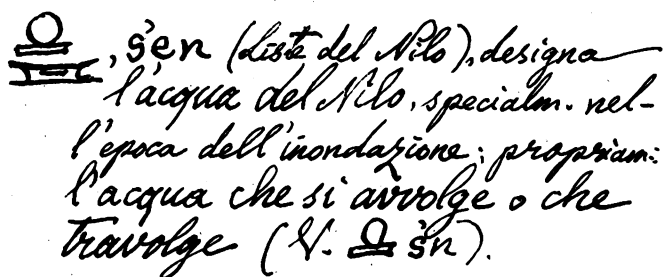 , s̓en (Liste del Nilo), designa
l'acqua del Nilo, specialm. nel-
l'epoca dell'inondazione; propriam:
l'acqua che si avvolge o che
travolge (V. s̓n).